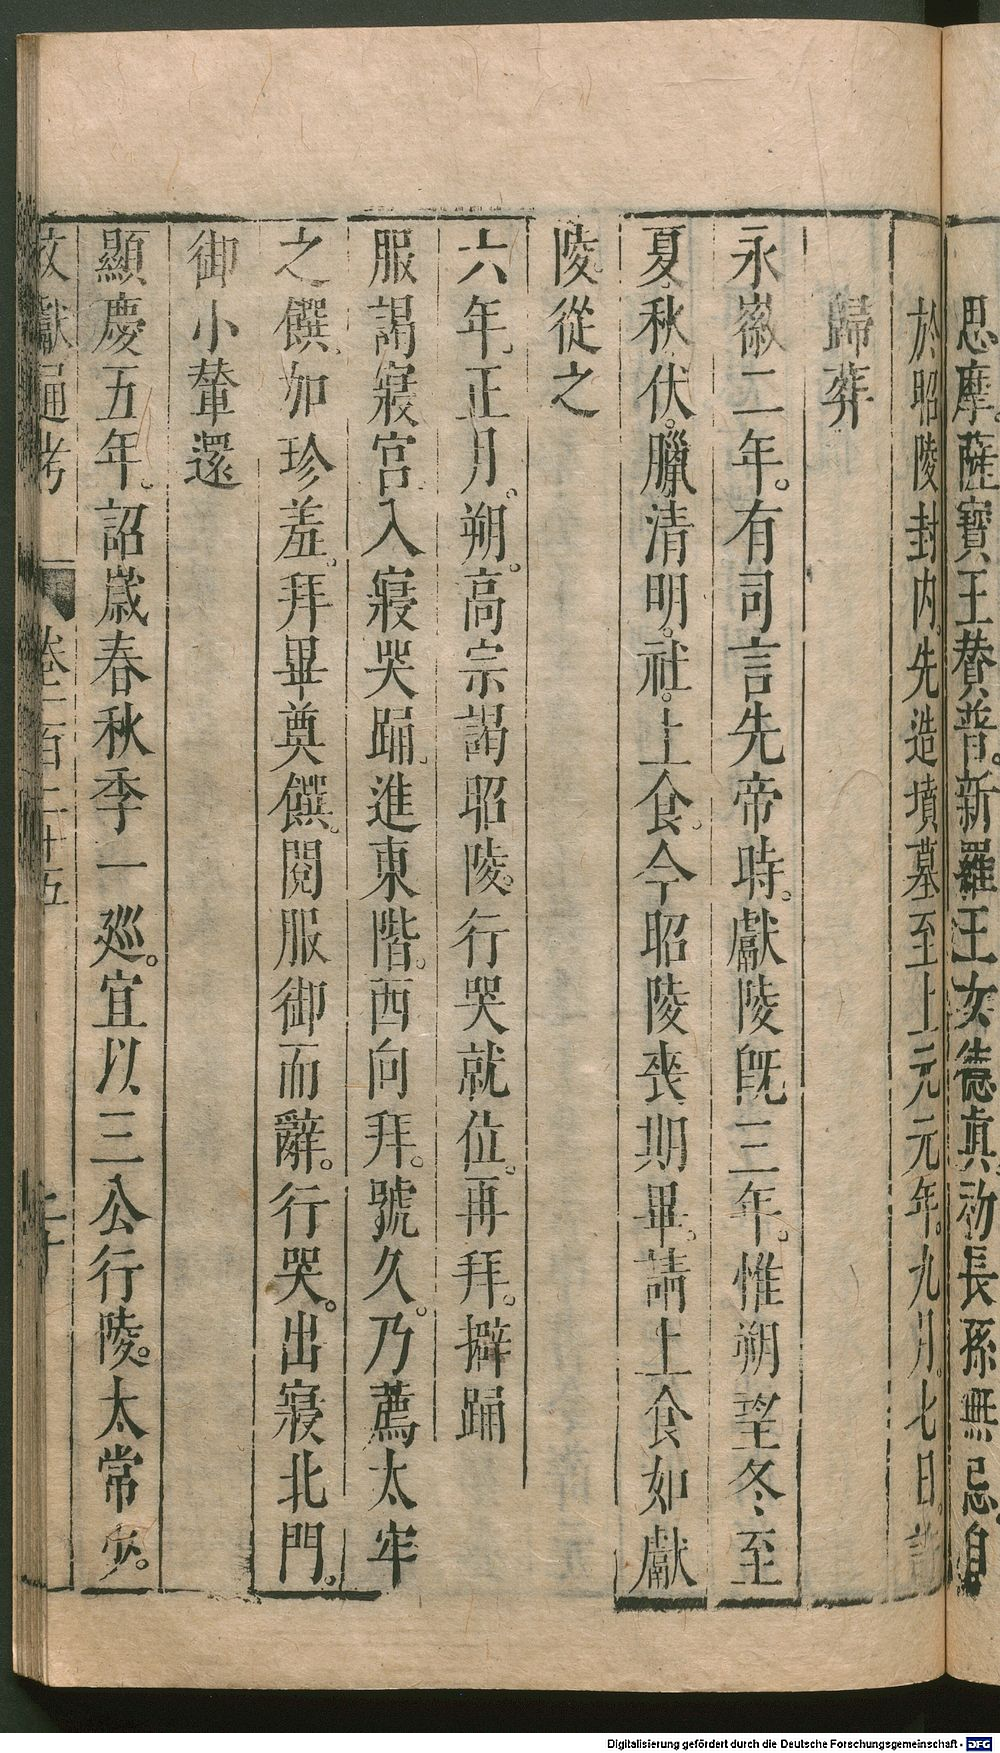 思摩。薩寶王賛普。新羅王女德眞。初長孫無忌。自
於昭陵封内。先造墳墓至上元元年。九月。七日。許
歸葬
永徽二年。有司言先帝時。獻陵旣三年。惟朔望冬至
夏秋伏。臘清明。社。上食。今昭陵喪期畢。請上食如獻
陵從之
六年。正月。朔。高宗謁昭陵。行哭就位。再拜。擗踊
服謁寢宮。入寢哭踊。進東階。西向拜。號久。乃薦太牢
之饌。加珍羞。拜畢奠饌。閱服御而辭。行哭。出寢北門。
御小輦還
顯慶五年。詔歲春秋季一巡。宜以三公行陵。太常少。
文獻通考 卷一百二十五
Digitalisierung gefördert durch die Deutsche Forschungsgemeinschaft - DFG